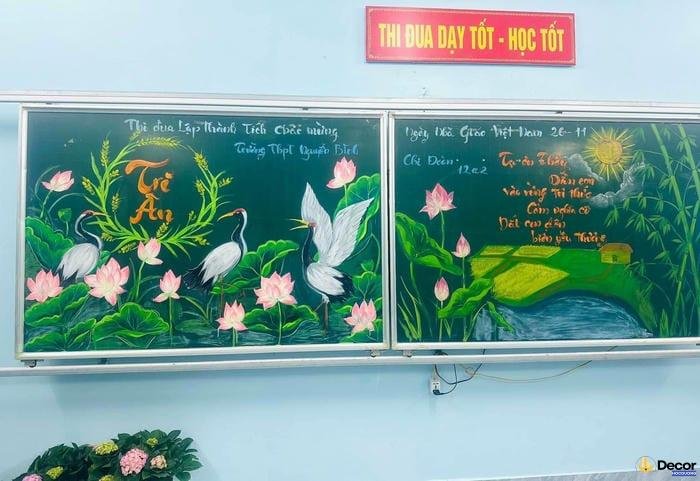 THI ĐUA DẠY TỐT - HỌC TỐT
Thi đua Lập Thành Tích Chào mừng
Trường Thpt Nguyễn Bỉnh
Tri
Ân
Ngày Nhà Giáo Việt Nam 20-11
Chi Đoàn: 12a2
Tạ ơn Thầy
Dẫn con
vào vùng Tri thức
Cảm nghĩa cô
Dắt con đến
biển yêu Thương
Decor